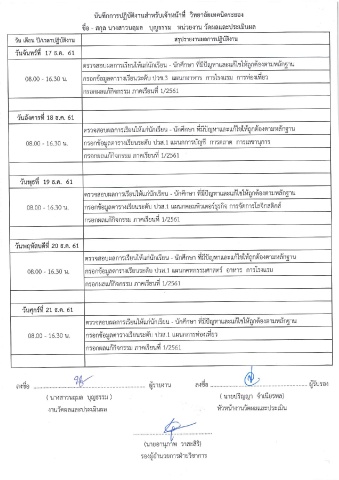 บันทึกการปฏิบัติงานสำหรับเจ้าหน้าที่ วิทยาลัยเทคนิคระยอง
ชื่อ - สกุล นางสาวนฤมล บุญธรรม หน่วยงาน วัดผลและประเมินผล
วัน เดือน ปี/เวลาปฏิบัติงาน สรุปรายงานผลการปฏิบัติงาน
วันจันทร์ที่ 17 ธ.ค. 61
ตรวจสอบผลการเรียนให้แก่นักเรียน - นักศึกษา ที่มีปัญหาและแก้ไขให้ถูกต้องตามหลักฐาน
08.00 - 16.30 น. กรอกข้อมูลตารางเรียนระดับ ปวช.3 แผนกอาหาร การโรงแรม การท่องเที่ยว
กรอกผลแก้กิจกรรม ภาคเรียนที่ 1/2561
วันอังคารที่ 18 ธ.ค. 61
ตรวจสอบผลการเรียนให้แก่นักเรียน - นักศึกษา ที่มีปัญหาและแก้ไขให้ถูกต้องตามหลักฐาน
08.00 - 16.30 น. กรอกข้อมูลตารางเรียนระดับ ปวส.1 แผนกการบัญชี การตลาด การเลขานุการ
กรอกผลแก้กิจกรรม ภาคเรียนที่ 1/2561
วันพุธที่ 19 ธ.ค. 61
ตรวจสอบผลการเรียนให้แก่นักเรียน - นักศึกษา ที่มีปัญหาและแก้ไขให้ถูกต้องตามหลักฐาน
08.00 - 16.30 น. กรอกข้อมูลตารางเรียนระดับ ปวส.1 แผนกคอมพิวเตอร์ธุรกิจ การจัดการโลจิสติกส์
กรอกผลแก้กิจกรรม ภาคเรียนที่ 1/2561
วันพฤหัสบดีที่ 20 ธ.ค. 61
ตรวจสอบผลการเรียนให้แก่นักเรียน - นักศึกษา ที่มีปัญหาและแก้ไขให้ถูกต้องตามหลักฐาน
08.00 - 16.30 น. กรอกข้อมูลตารางเรียนระดับ ปวส.1 แผนกคหกรรมศาสตร์ อาหาร การโรงแรม
กรอกผลแก้กิจกรรม ภาคเรียนที่ 1/2561
วันศุกร์ที่ 21 ธ.ค. 61
ตรวจสอบผลการเรียนให้แก่นักเรียน - นักศึกษา ที่มีปัญหาและแก้ไขให้ถูกต้องตามหลักฐาน
08.00 - 16.30 น. กรอกข้อมูลตารางเรียนระดับ ปวส.1 แผนกการท่องเที่ยว
กรอกผลแก้กิจกรรม ภาคเรียนที่ 1/2561
ลงชื่อ ผู้รายงาน ลงชื่อ ผู้รับรอง
( นางสาวนฤมล บุญธรรม ) ( นายปริญญา จำเนียรพล)
งานวัดผลและประเมินผล หัวหน้างานวัดผลและประเมิน
(นายอานุภาพ วาสะสิริ)
รองผู้อำนวยการฝ่ายวิชาการ